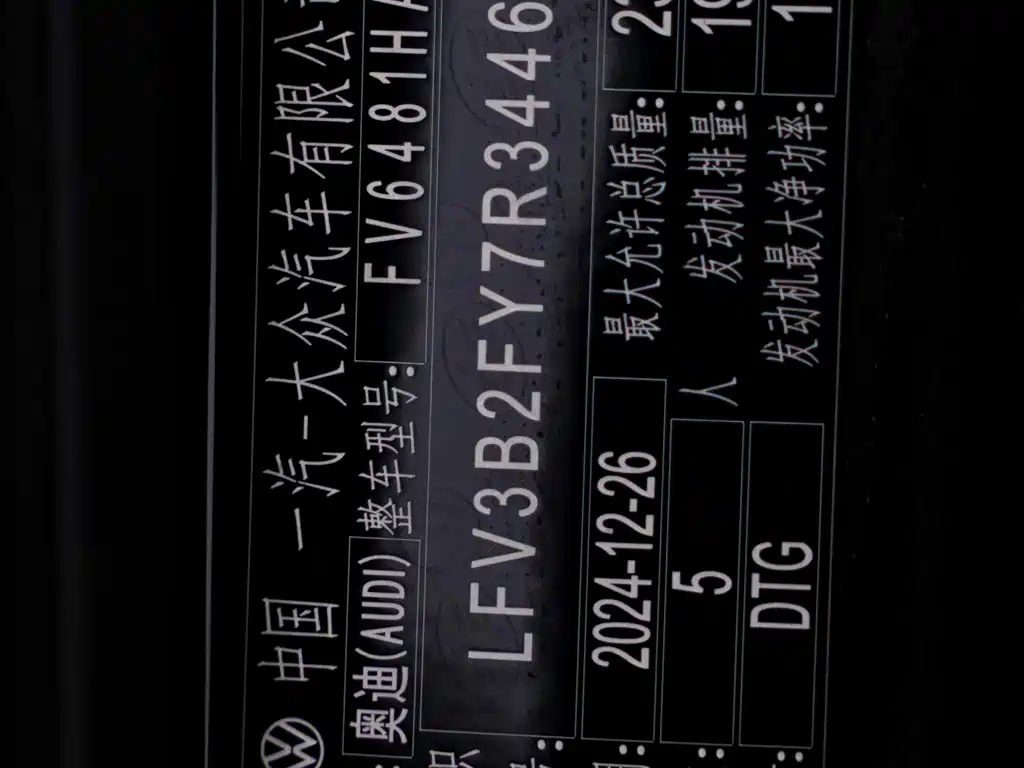 中国 一汽-大众汽车有限公
奥迪(AUDI) 整车型号: FV6481HA
LFV3B2FY7R3446
2024-12-26 最大允许总质量: 23
5 人 发动机排量: 19
DTG 发动机最大净功率: 1